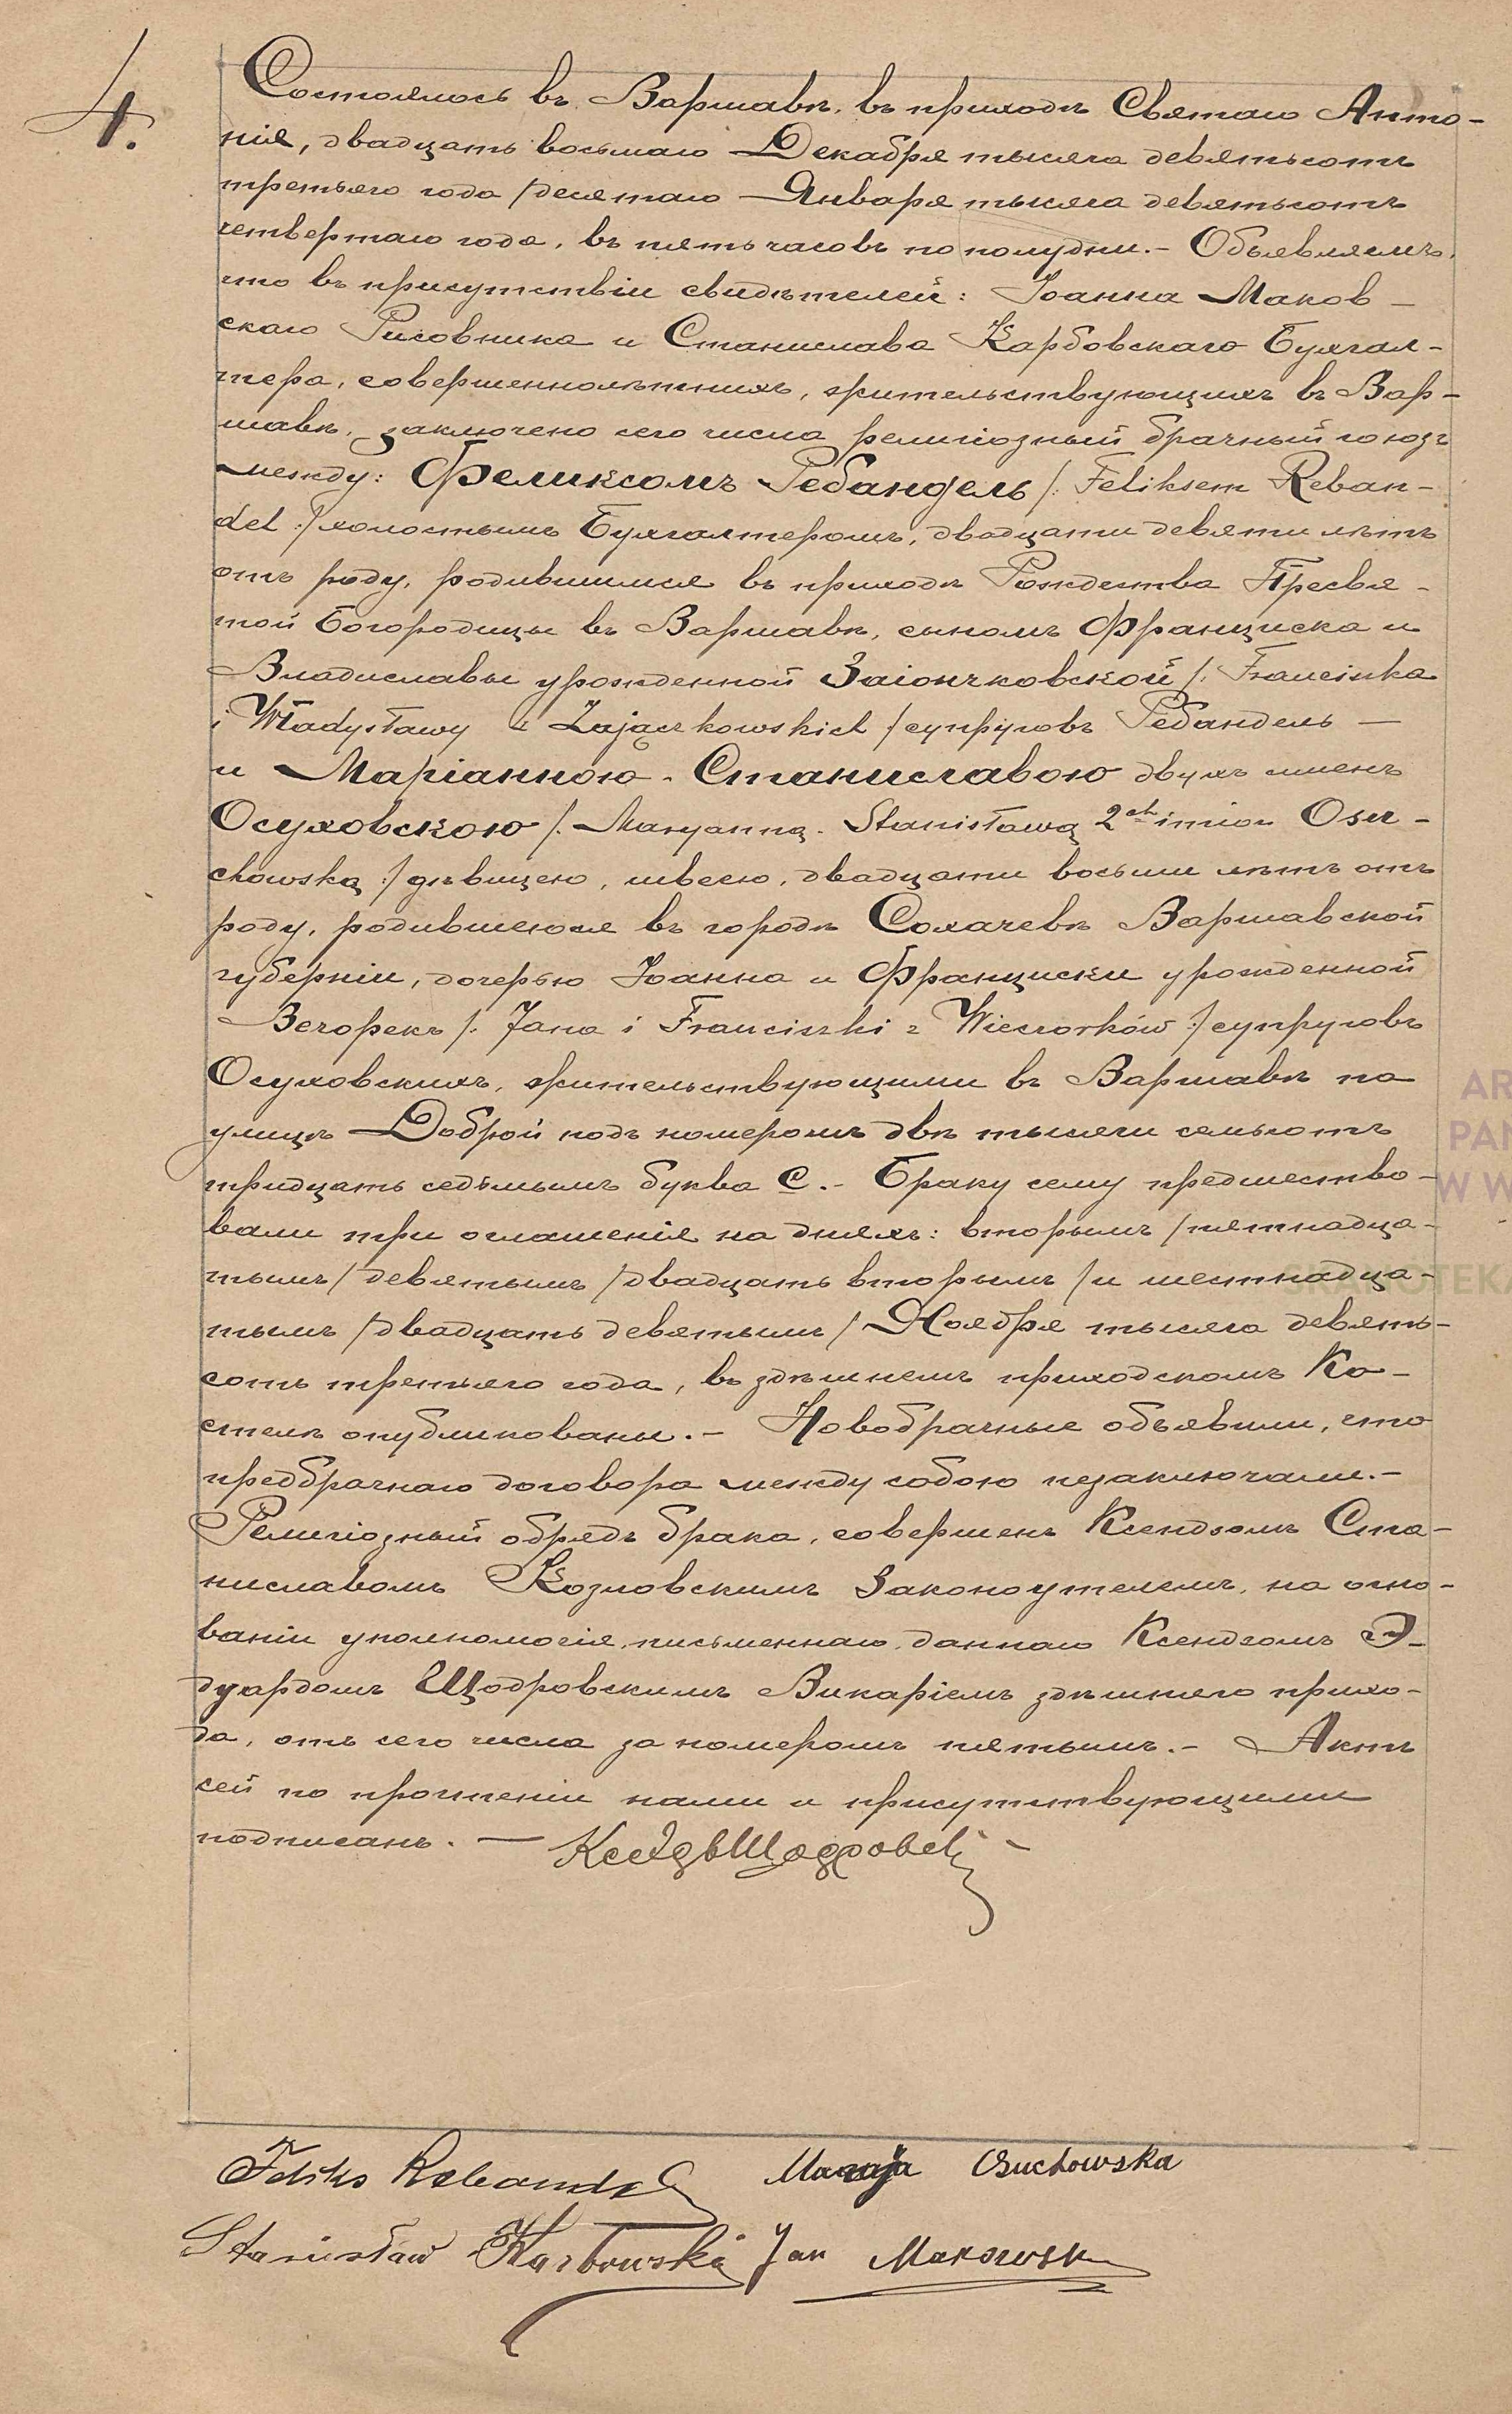 4.
Состоялось въ Варшавѣ, въ приходѣ Святаго Анто-
нія, двадцать восьмаго Декабря тысяча девятьсотъ
третьяго года /десятаго Января тысяча девятьсотъ
четвертаго года, въ пять часовъ по полудни.- Объявляемъ,
что въ присутствіи свидѣтелей: Іоанна Маков-
скаго Рисовника и Станислава Карбовскаго Бухгал-
тера, совершеннолѣтнихъ, жительствующихъ въ Вар-
шавѣ, заключено сего числа религіозный брачный союзъ
между: Феликсомъ Ребандель /: Feliksem Reban-
del :/ холостымъ Бухгалтеромъ, двадцати девяти лѣтъ
отъ роду, родившимся въ приходѣ Рождества Пресвя-
той Богородицы въ Варшавѣ, сыномъ Франциска и
Владиславы урожденной Заіончковской /: Franciszka
i Władysławy z Zajączkowskich / супруговъ Ребандель —
и Маріанною-Станиславою двухъ именъ
Осуховскою /: Maryanną-Stanisławą 2ch imion Osu-
chowską :/ дѣвицею, швеею, двадцати восьми лѣтъ отъ
роду, родившеюся въ городѣ Сохачевѣ Варшавской
губерніи, дочерью Іоанна и Франциски урожденной
Вечорекъ /: Jana i Franciszki z Wieczorków :/ супруговъ
Осуховскихъ, жительствующими въ Варшавѣ на
улицѣ Доброй подъ номеромъ двѣ тысячи семьсотъ
тридцать седьмымъ буква С.- Браку сему предшество-
вали три оглашенія на дняхъ: вторымъ /пятнадца-
тымъ/ девятымъ /двадцать вторымъ/ и шестнадца-
тымъ /двадцать девятымъ/ Ноября тысяча девять-
сотъ третьяго года, въ здѣшнемъ приходскомъ Ко-
стелѣ опубликованы.- Новобрачные объявили, что
предбрачнаго договора между собою незаключали.-
Религіозный обрядъ брака, совершенъ Ксендзомъ Ста-
ниславомъ Козловскимъ Законоучителемъ, на осно-
ваніи уполномочія письменнаго даннаго Ксендзомъ Э-
дуардомъ Щодровскимъ Викаріемъ здѣшняго прихо-
да, отъ сего числа за номеромъ пятымъ.- Актъ
сей по прочтеніи нами и присутствующими
подписанъ. — Ксендзъ Щодровскій -
Feliks Rebandel Maryja Osuchowska
Stanisław Karbowski Jan Makowski
AR
PAŃ
W W
SKANOTEKA